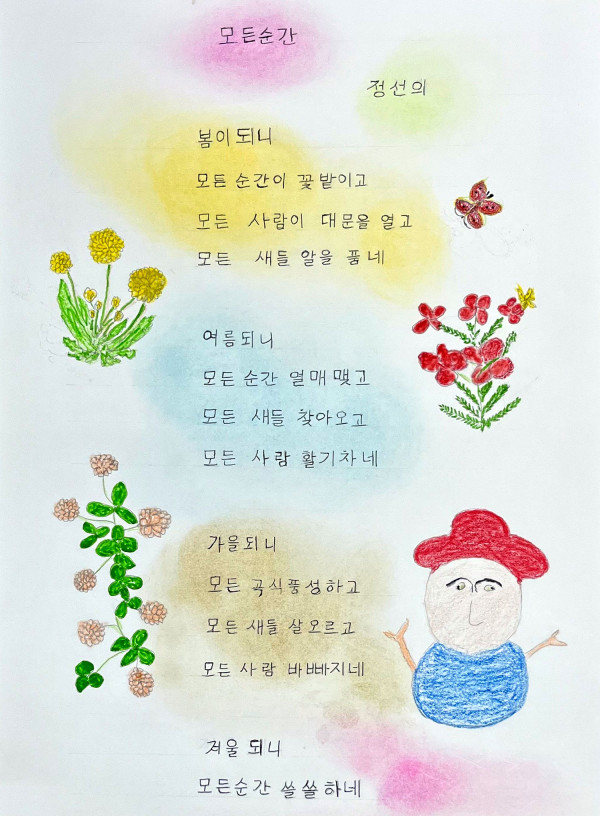 모든순간
정선의
봄이되니
모든 순간이 꽃밭이고
모든 사람이 대문을 열고
모든 새들 알을 품네
여름되니
모든 순간 열매 맺고
모든 새들 찾아오고
모든 사람 활기차네
가을되니
모든 곡식풍성하고
모든 새들 살오르고
모든 사람 바빠지네
겨울 되니
모든순간 쓸쓸하네